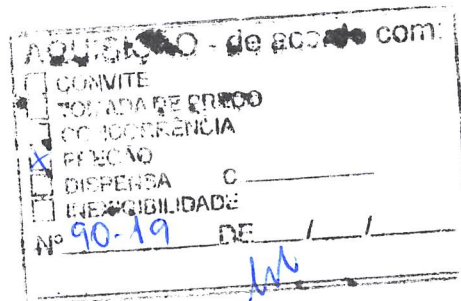 AQUISIÇÃO - de acordo com:
CONVITE
TOMADA DE PREÇO
CONCORRÊNCIA
X PREGÃO
DISPENSA C
INEXIGIBILIDADE
Nº 90-19 DE / /